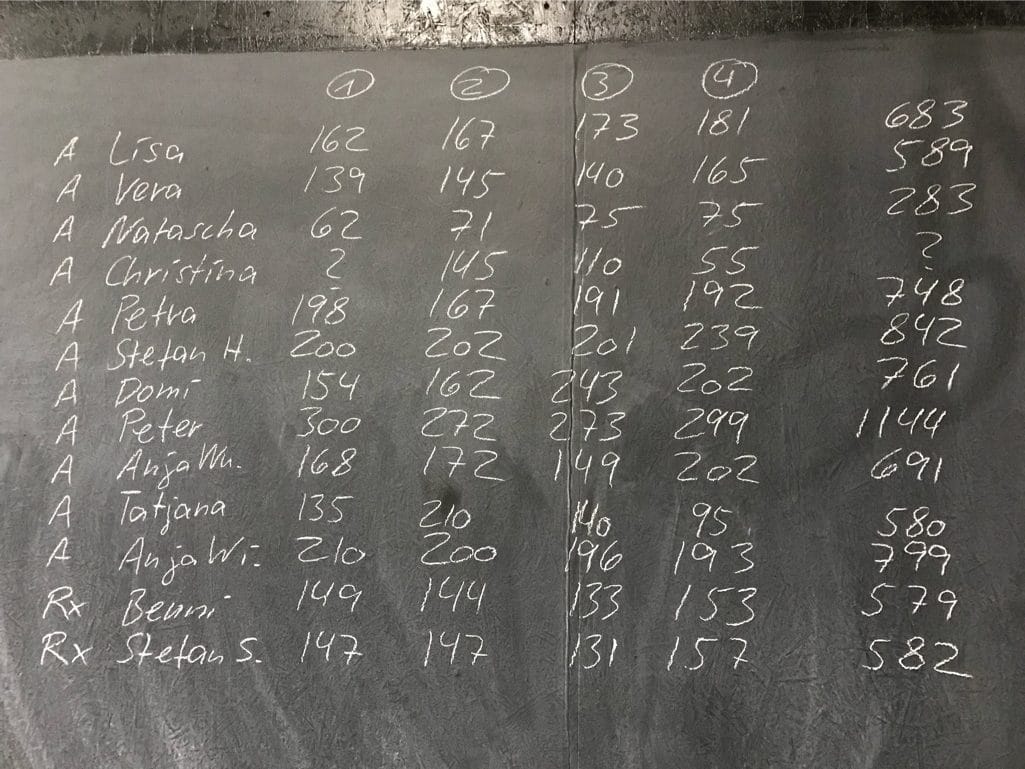 ① ② ③ ④
A Lisa 162 167 173 181 683
A Vera 139 145 140 165 589
A Natascha 62 71 75 75 283
A Christina ? 145 110 55 ?
A Petra 198 167 191 192 748
A Stefan H. 200 202 201 239 842
A Domi 154 162 243 202 761
A Peter 300 272 273 299 1144
A Anja Wu. 168 172 149 202 691
A Tatjana 135 210 140 95 580
A Anja Wi. 210 200 196 193 799
Rx Benni 149 144 133 153 579
Rx Stefan S. 147 147 131 157 582